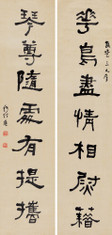 華鳥盡情相慰藉
琴尊隨處有提攜